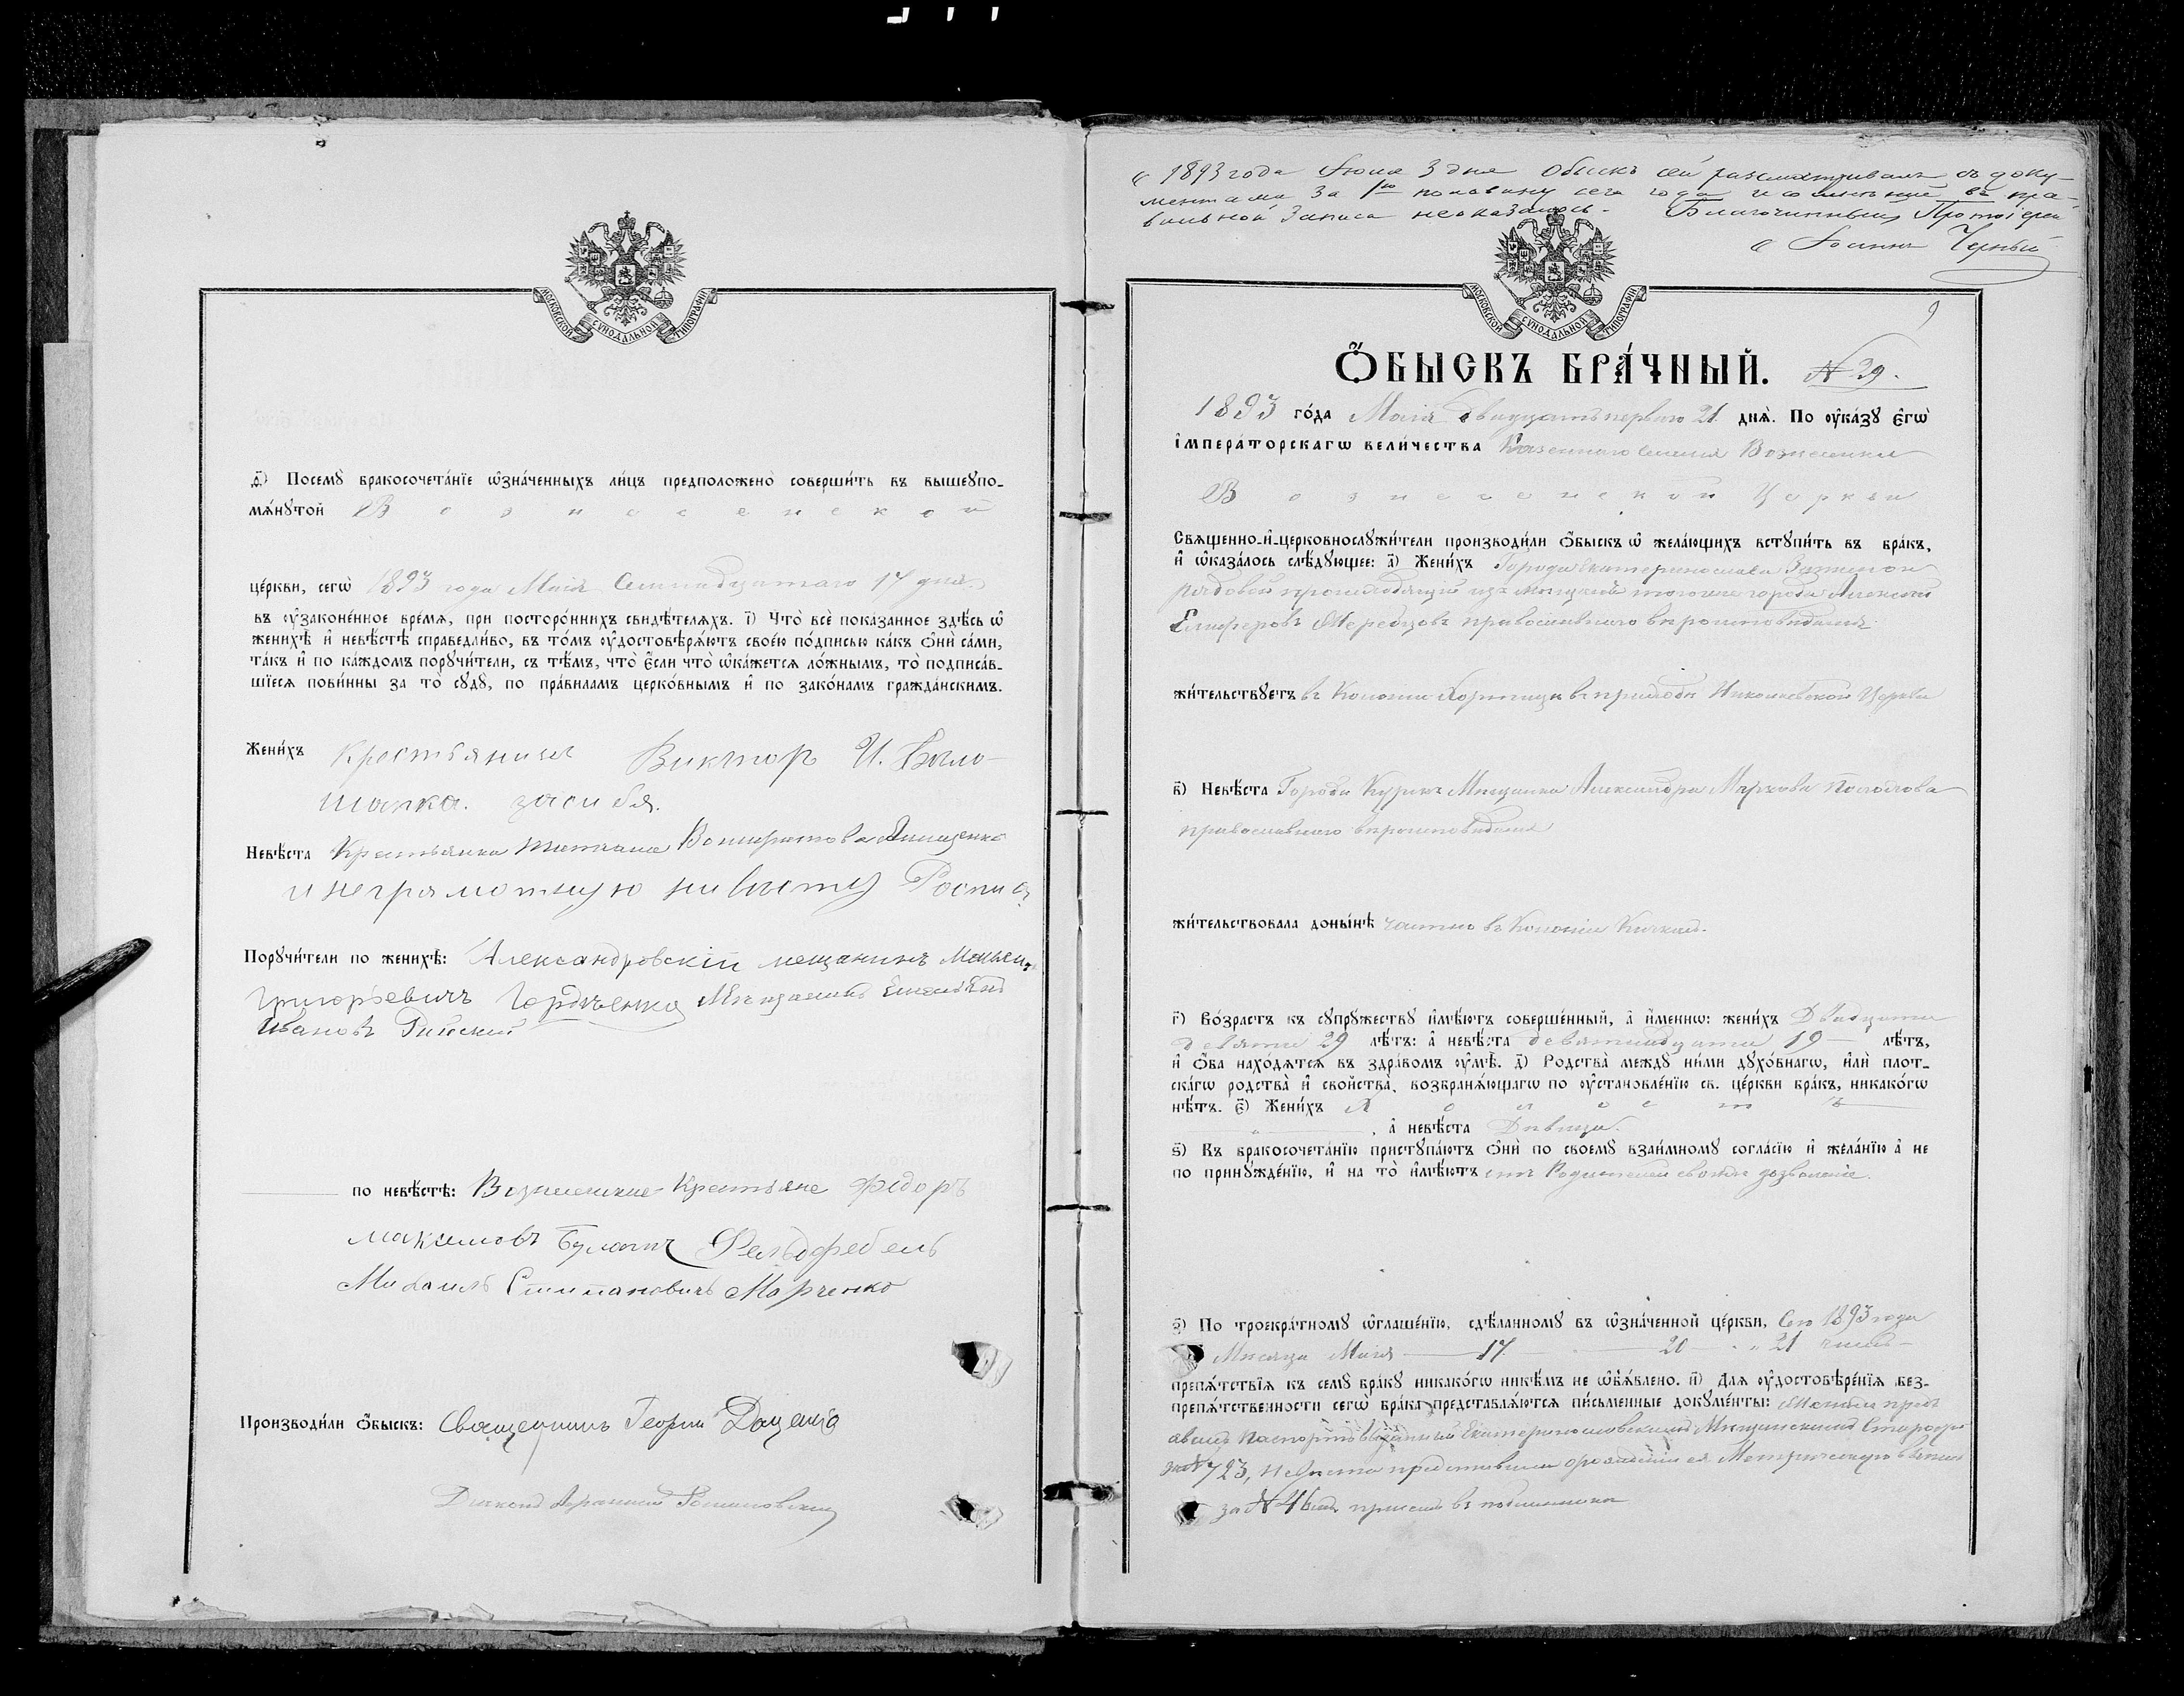 МОСКОВСКОЙ СѴНОДАЛЬНОЙ ТИПОГРАФІИ
ѳ҃) Посемꙋ бракосочета́нїе ѡ҆зна́ченныхъ ли́цъ предположено̀ соверши́ть въ вышеꙋпо-
мѧ́нꙋтой Вознесенской
це́ркви, сегѡ̀ 1893 года Маія Семнадцатаго 17 дня
въ ᲂу҆зако́ненное вре́мѧ, при посторо́ннихъ свидѣ́телѧхъ. і҃) Что̀ всѐ пока́занное здѣ́сь ѡ҆
женихѣ̀ и҆ невѣ́стѣ справедли́во, въ то́мъ ᲂу҆достовѣрѧ́ютъ свое́ю по́дписью ка́къ ѻ҆нѝ са́ми,
та́къ и҆ по ка́ждомъ порꙋчи́тели, съ тѣ́мъ, что̀ є҆́сли что̀ ѡ҆ка́жетсѧ ло́жнымъ, то̀ подписа́в-
шїесѧ пови́нны за то̀ сꙋдꙋ̀, по пра́виламъ церко́внымъ и҆ по зако́намъ гражда́нскимъ.
Жени́хъ Крестьянинъ Викторъ И. Бѣло-
шапка. за себя.
Невѣ́ста Крестьянка
и неграмотную невѣсту
Порꙋчи́тели по женихѣ̀: Александровскій мещанинъ
Григорьевичъ Гордѣенко Мѣщанинъ
Ивановъ
по невѣ́стѣ: Вознесенские Крестьяне Федоръ
Максимовъ Булатъ Фельдфебель
Михаилъ Степановичъ Марченко
Производи́ли ѻ҆́быскъ: Священникъ Георгій Даценко
Діаконъ
1893 года Июня 3 дня Обыскъ сей разсматривалъ съ доку-
ментами за 1ю половину сего года и
вильной Записи неоказалось. Благочинный Протоіерей
Іоаннъ Черный
МОСКОВСКОЙ СѴНОДАЛЬНОЙ ТИПОГРАФІИ
9
Ѻ҆́БЫСКЪ БРА́ЧНЫЙ. № 29.
1893 го́да Маія двадцать перваго 21 днѧ̀. По ᲂу҆ка́зꙋ є҆гѡ̀
і҆мпера́торскагѡ вели́чества Казеннаго селенія Вознесенки
Вознесенской Церкви
Свѧщенно-и҆-церковнослꙋжи́тели производи́ли ѻ҆́быскъ ѡ҆ жела́ющихъ встꙋпи́ть въ бра́къ,
и҆ ѡ҆каза́лось слѣ́дꙋющее: а҃) Жени́хъ Города Екатеринослава Запасной
рядовой происходящій изъ мѣщанъ того же города Алексѣй
Елиферовъ Жеребцовъ православнаго вѣроисповѣданія
жи́тельствꙋетъ въ Колоніи Хортица въ приходѣ Николаевской Церкви
в҃) Невѣ́ста Города Мѣщанка Александра Маркова
православнаго вѣроисповѣданія
жи́тельствовала доны́нѣ частно въ Колоніи Кичкас.
г҃) Во́зрастъ къ сꙋпрꙋ́жествꙋ и҆мѣ́ютъ соверше́нный, а҆ и҆́меннѡ: жени́хъ Двадцати
девяти 29 лѣ́тъ: а҆ невѣ́ста девятнадцати 19 лѣ́тъ,
и҆ ѻ҆́ба нахо́дѧтсѧ въ здра́вомъ ᲂу҆мѣ̀. д҃) Родства̀ междꙋ̀ ни́ми дꙋхо́внагѡ, и҆лѝ плот-
ска́гѡ родства̀ и҆ сво́йства, возбранѧ́ющагѡ по ᲂу҆становле́нїю св. це́ркви бра́къ, никако́гѡ
нѣ́тъ. є҃) Жени́хъ Холостъ
, а҆ невѣ́ста Дѣвица.
ѕ҃) Къ бракосочета́нїю пристꙋпа́ютъ ѻ҆нѝ по своемꙋ̀ взаи́мномꙋ согла́сїю и҆ жела́нїю а҆ не
по принꙋжде́нїю, и҆ на то̀ и҆мѣ́ютъ отъ Родителей своихъ дозволеніе.
з҃) По троекра́тномꙋ ѡ҆глаше́нїю, сдѣ́ланномꙋ въ ѡ҆зна́ченной це́ркви, Сего 1893 года
Мѣсяца Маія 17 20 21 числъ
препѧ́тствїѧ къ семꙋ̀ бра́кꙋ никако́гѡ никѣ́мъ не ѡ҆б̾ѧ́влено. и҃) Длѧ ᲂу҆достовѣре́нїѧ без-
препѧ́тственности сегѡ̀ бра́ка представлѧ́ютсѧ пи́сьменные докꙋме́нты: Женихъ пред-
авилъ паспортъ выданный Екатеринославскимъ Мѣщанскимъ Старостою
за № 723, Невѣста представила о рожденіи ея Метрическую
за № 46